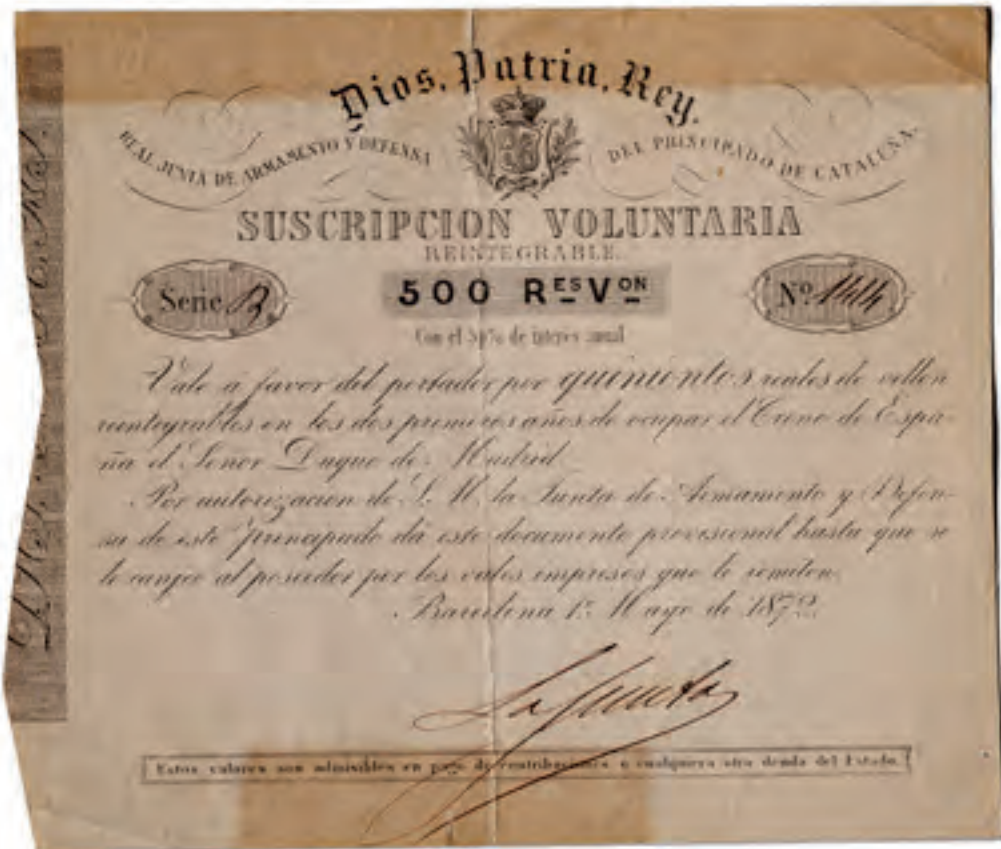 Dios, Patria, Rey.
REAL JUNTA DE ARMAMENTO Y DEFENSA
DEL PRINCIPADO DE CATALUÑA.
SUSCRIPCION VOLUNTARIA
REINTEGRABLE.
Serie B
500 RES VON
Nº 1414
Con el 5 p% de interes anual
Vale á favor del portador por quinientos reales de vellon
reintegrables en los dos primeros años de ocupar el Trono de Espa-
ña el Señor Duque de Madrid
Por autorizacion de S. M. la Junta de Armamento y Defen-
sa de este Principado dá este documento provisional hasta que se
le cangee al poseedor por los vales impresos que le remiten.
Barcelona 1º Mayo de 1872
La Junta
Estos valores son admisibles en pago de contribuciones o cualquiera otra deuda del Estado.